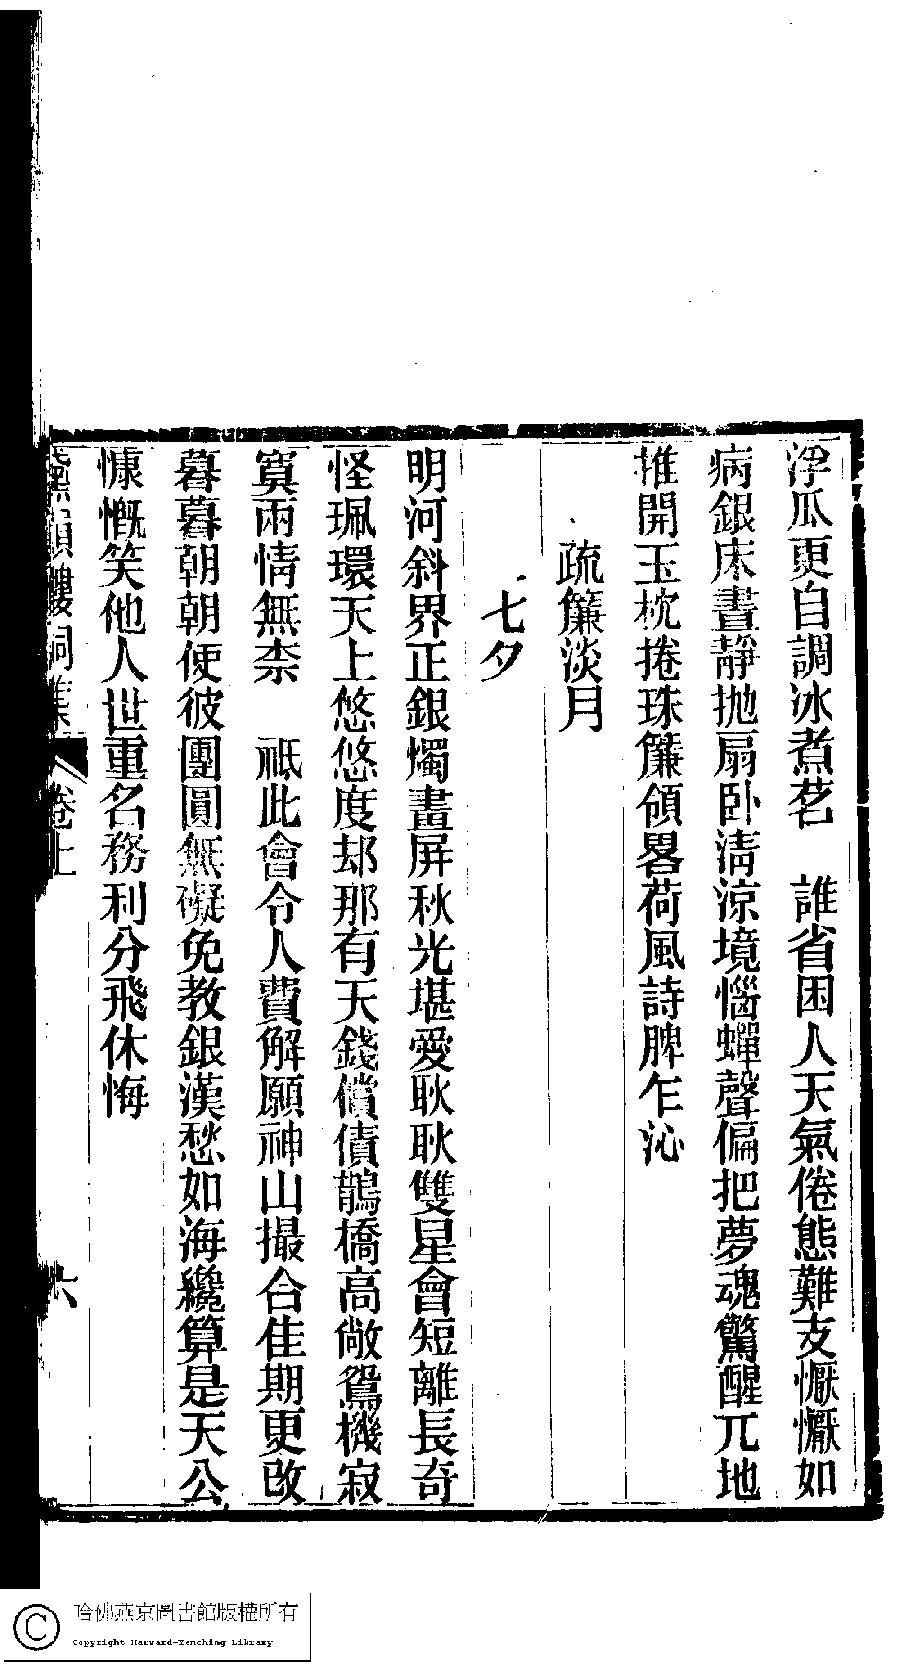 浮瓜更自調冰煮茗　誰省困人天氣倦態難支懨懨如
病銀床晝靜拋扇卧清涼境惱蟬聲偏把夢魂驚醒兀地
推開玉枕捲珠簾領畧荷風詩脾乍沁
疏簾淡月
七夕
明河斜界正銀燭畫屏秋光堪愛耿耿雙星會短離長奇
怪珮環天上悠悠度却那有天錢償債鵲橋高敞鴛機寂
寞兩情無柰　祗此會令人費解願神山撮合佳期更改
暮暮朝朝使彼團圓無礙免教銀漢愁如海纔算是天公
慷慨笑他人世重名務利分飛休悔
樓詞集　卷上　六
哈佛燕京圖書館版權所有
Copyright Harvard-Yenching Library